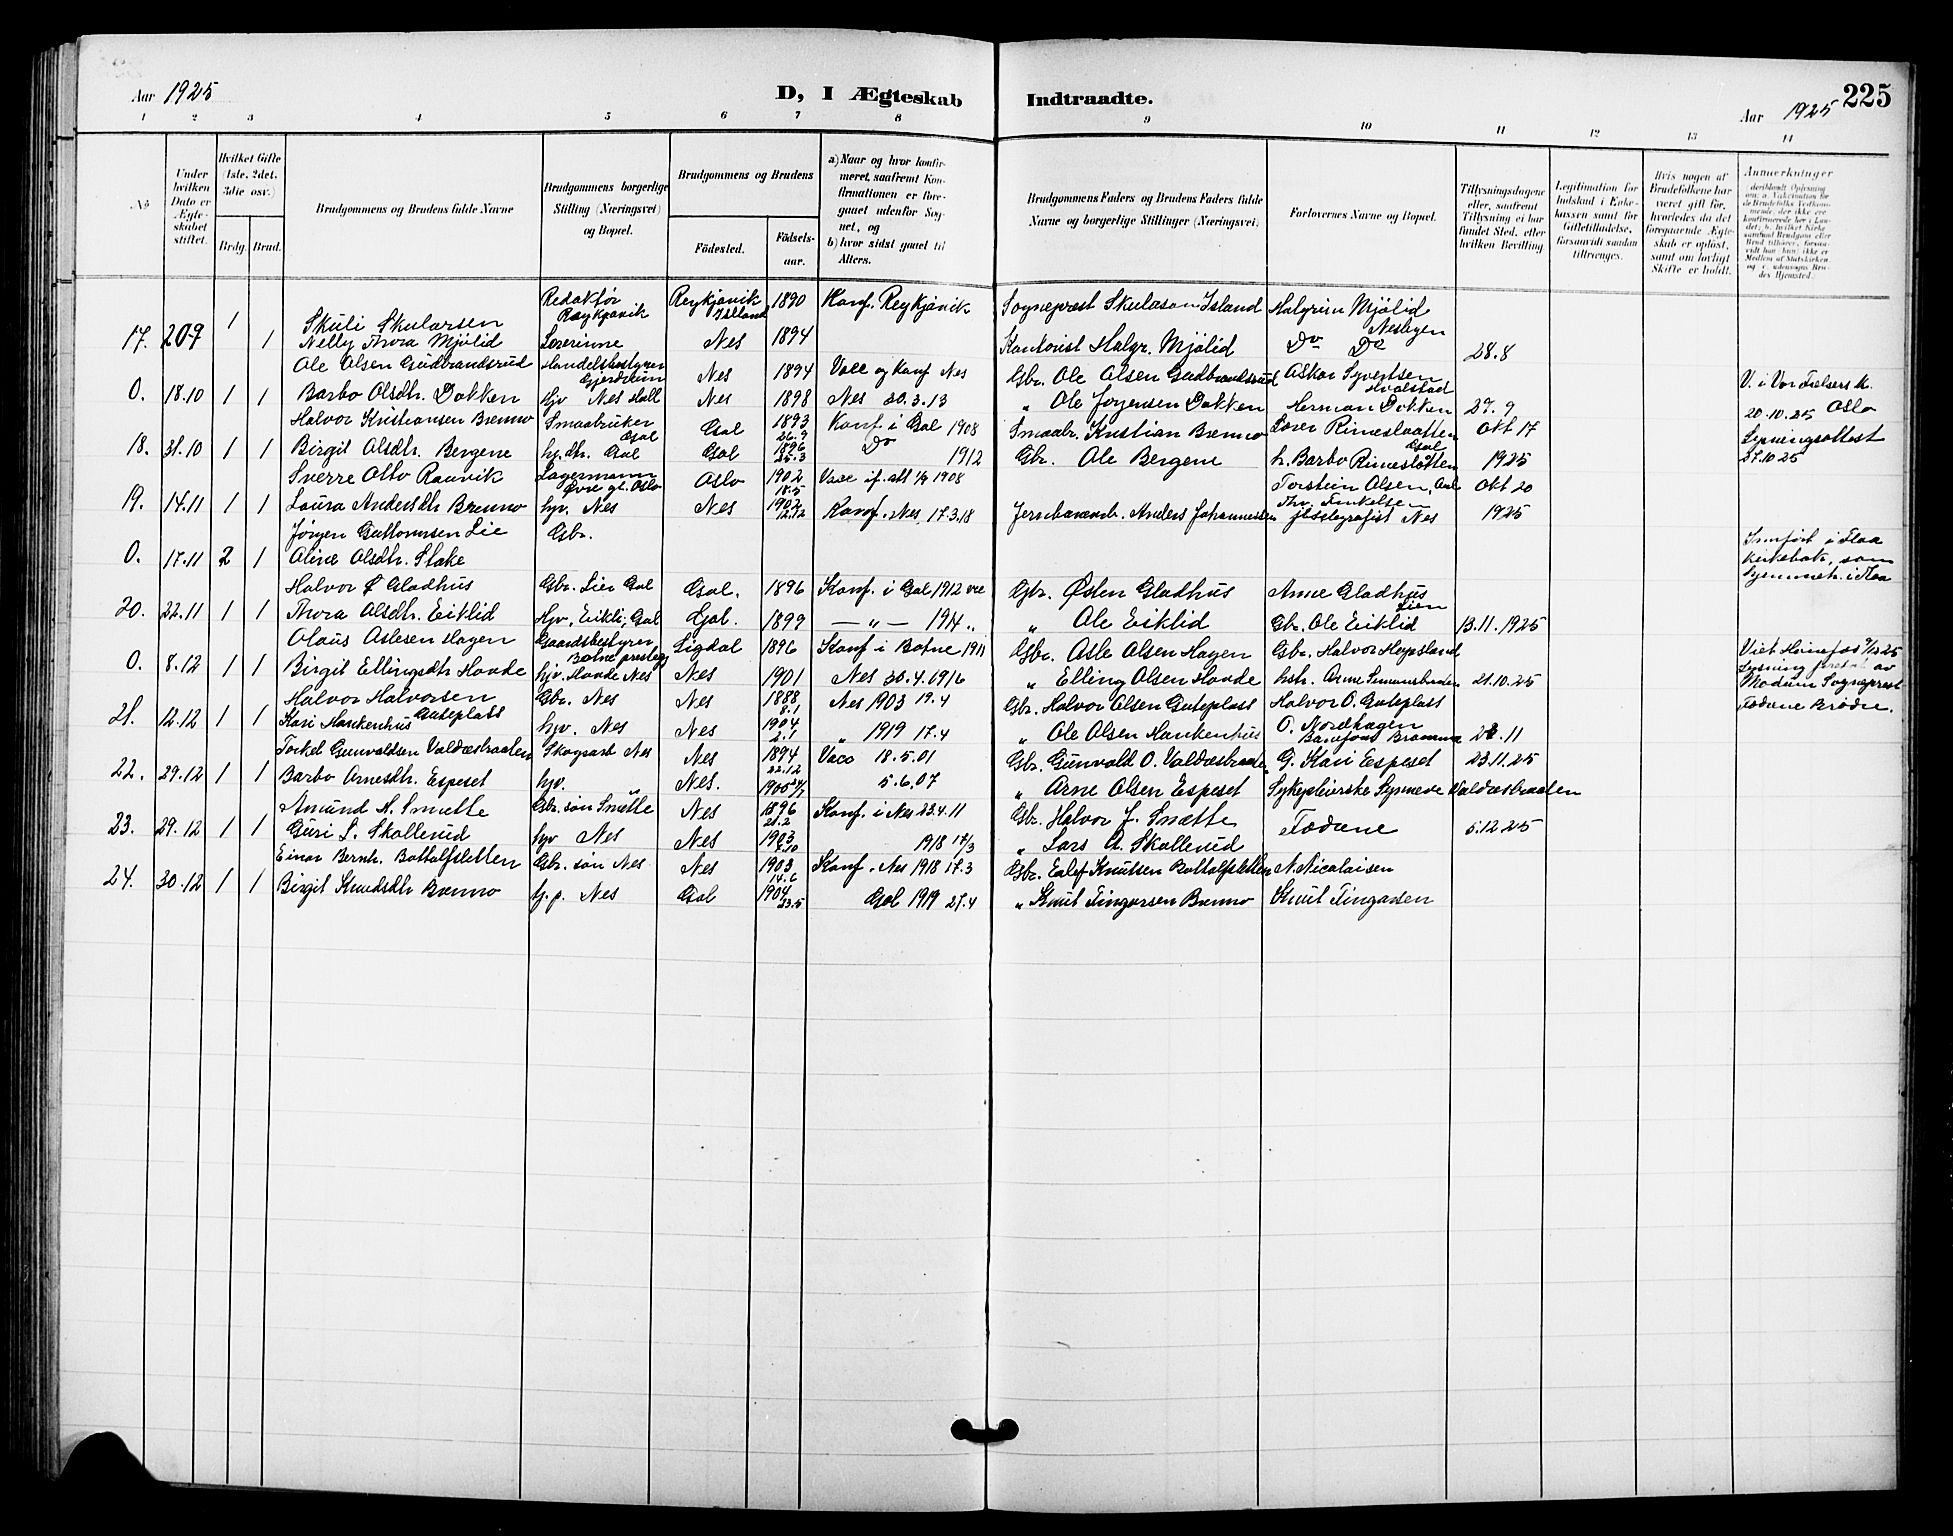 Aar 1925
D, I Ægteskab Indtraadte.
Aar 1925
225
1 2 3 4 5 6 7 8 9 10 11 12 13 14
№
Under hvilken Dato er Ægteskabet stiftet.
Hvilket Gifte (1ste, 2det, 3die osv.)
Brdg. Brud.
Brudgommens og Brudens fulde Navne
Brudgommens borgerlige Stilling (Næringsvei) og Bopæl.
Brudgommens og Brudens
Födested. Födselsaar.
a) Naar og hvor konfirmeret, saafremt Konfirmationen er foregaaet udenfor Sognet, og
b) hvor sidst gaaet til Alters.
Brudgommens Faders og Brudens Faders fulde Navne og borgerlige Stillinger (Næringsvei).
Forlovernes Navne og Bopæl.
Tillysningsdagene eller, saafremt Tillysning ei har fundet Sted, efter hvilken Bevilling
Legitimation for Indskud i Enkekassen samt for Giftetilladelse, forsaavidt saadan tiltrænges.
Hvis nogen af Brudefolkene har været gift för, hvorledes da det foregaaende Ægteskab er oplöst, samt om lovligt Skifte er holdt.
Anmerkninger
Skuli Skularsen Redaktør Reykjavik Reykjavik Island 1890 Konf. Reykjavik Sogneprest Skulason Island Halgrim Mjölid Nesbyen
17. 20.9 1 1 Nelly Thora Mjölid Lærerinne Nes 1894 Kontorist Halgr. Mjölid Do Do 28.8
Ole Olsen Gudbrandsrud Handelsbestyrer Gjerdrum Nes 1894 Vacc og Konf Nes Gbr. Ole Olsen Gudbrandsrud Askar Syvertsen Hvalstad
0. 18.10 1 1 Barbo Olsdh. Dokken hjv Nes Hall Nes 1898 Nes 20.3.13 " Ole Jørgensen Dokken Herman Dokken 27.9 V. i Vor Frelsers K. 20.10.25 Oslo
Halvor Kristiansen Brenno Smaabruker Gol Gol 1893 26.9 Konf. i Gol 1908 Smaabr. Kristian Brenno Lover Rimeslaatten Gol Okt 17
18. 31.10 1 1 Birgit Olsdh. Bergene hj.dh. Gol Gol 1896 25.3 Do 1912 Gbr. Ole Bergene h. Barbo Rimeslotten 1925 Lysningsattest 27.10 25
Sverre Otto Raavik Lagermann Øvre gt. Oslo Oslo 1902 18.5 Vacc if. att 1/9 1908 Torstein Olsen, Aal Okt 20
19. 14.11 1 1 Laura Andersdh Brenno hjv. Nes Nes 1902 12.12 Konf. Nes 17.3.18 Jernbanearb. Anders Johannessen Thv. Finkelsen jtelegrafist Nes 1925
Jørgen Guttormsen Lie Gbr.
0. 17.11 2 1 Oline Olsdh. Stake Innført i Flaa kirkebok, som
Halvor Ø Gladhus Gbr. Lien Gol Gol. 1896 Konf. i Gol 1912 Gbr. Østen Gladhus Anne Gladhus Lien
20. 22.11 1 1 Thora Olsdh. Eiklid Hjv. Eikli, Gol Gol. 1899 — " — 1914 " Ole Eiklid Gbr. Ole Eiklid 13.11.1925
Olaus Aslesen Hagen Gaardsbestyrer Botne presteg Sigdal 1896 Konf i Botne 1911 Gbr. Asle Olsen Hagen Gbr. Halvor Heyesland
0. 8.12 1 1 Birgit Ellingsdh Hovde hjv. Hovde Nes Nes 1901 Nes 20.4.1916 " Elling Olsen Hovde hstr. Anne Simensbraaten 21.10.25 Viet 25 Lysning foretat av Modum Sogneprest
Halvor Halvorsen Guteplass Gbr. Nes Nes 1888 8.1 Nes 1903 19.4 Gbr. Halvor Olsen Guteplass Halvor O. Guteplass
21. 12.12 1 1 Kari Hankenhus hjv. Nes Nes 1904 2.1 " 1919 17.4 " Ole Olsen Hankenhus O. Nordhagen Banefogd Bromma 28.11
Torkel Gunvaldsen Valdæsbraaten Skogsarb Nes Nes 1894 22.12 Vacc 18.5.01 Gbr. Gunvald O. Valdæsbraaten G. Kari Espeset 23.11.25
22. 29.12 1 1 Barbo Arnesdh. Espeset hjv. " Nes. 1905 5.6.07 " Arne Olsen Espeset Sykepleierske Synneve Valdæsbraaten
Amund H. Smætte Gbr. søn Smætte Nes 1896 21.2 Konf. i Nes 23.4.11 Gbr. Halvor J. Smætte
23. 29.12 1 1 Guri L. Skollerud hjv Nes Nes 1903 1918 17/3 " Lars A. Skollerud Fødrene 5.12.25
Einar Bernh. Bottolfsletten Gbr. søn Nes Nes 1903 14.6 Konf. Nes 1918 17.3 Gbr. Eelef Knutsen Bottolfsletten N. Nicolaisen
24. 30.12 1 1 Birgit Knudsdh Brenno hj.p. Nes Gol 1904 23.5 Gol 1919 27.4 " Knut Fingarsen Brenno Knut Fingarsen